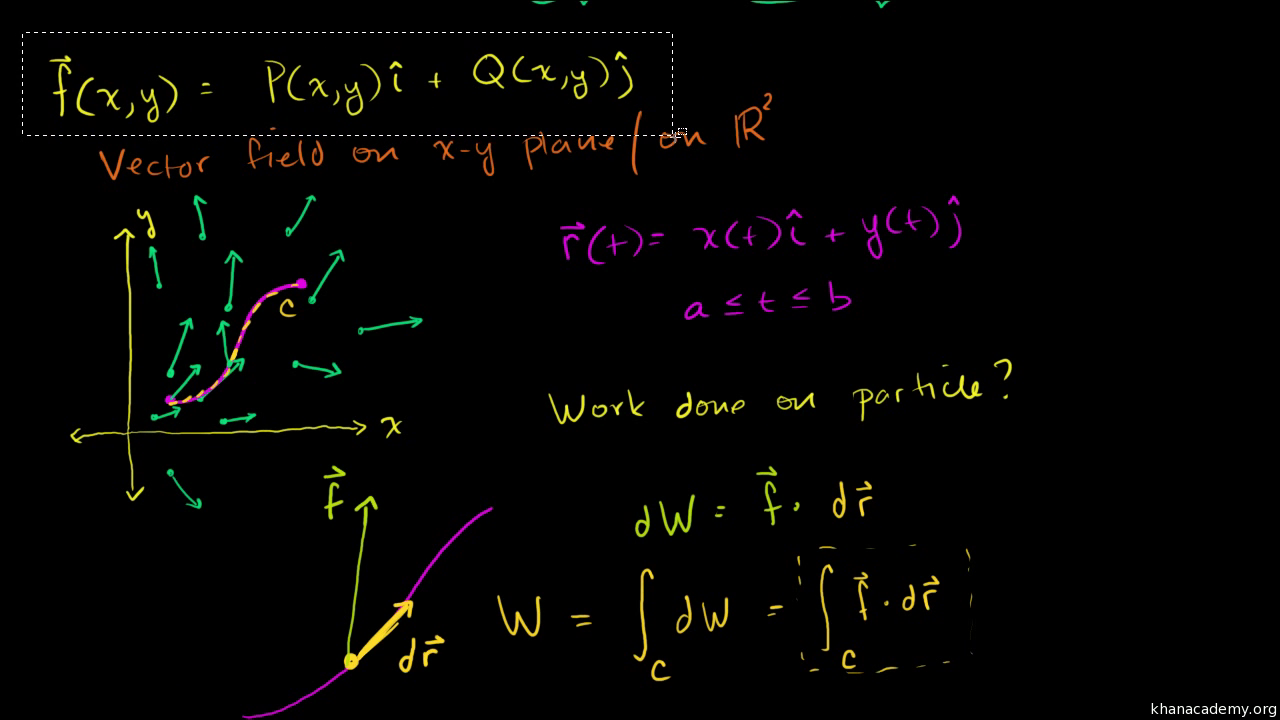 f⃗(x,y) = P(x,y)î + Q(x,y)ĵ
Vector field on x-y plane/on ℝ²
y
r⃗(t)= x(t)î + y(t)ĵ
c
a ≤ t ≤ b
x
Work done on particle?
f⃗
dW = f⃗ · dr⃗
dr⃗
W = ∫_c dW = ∫_c f⃗ · dr⃗
khanacademy.org